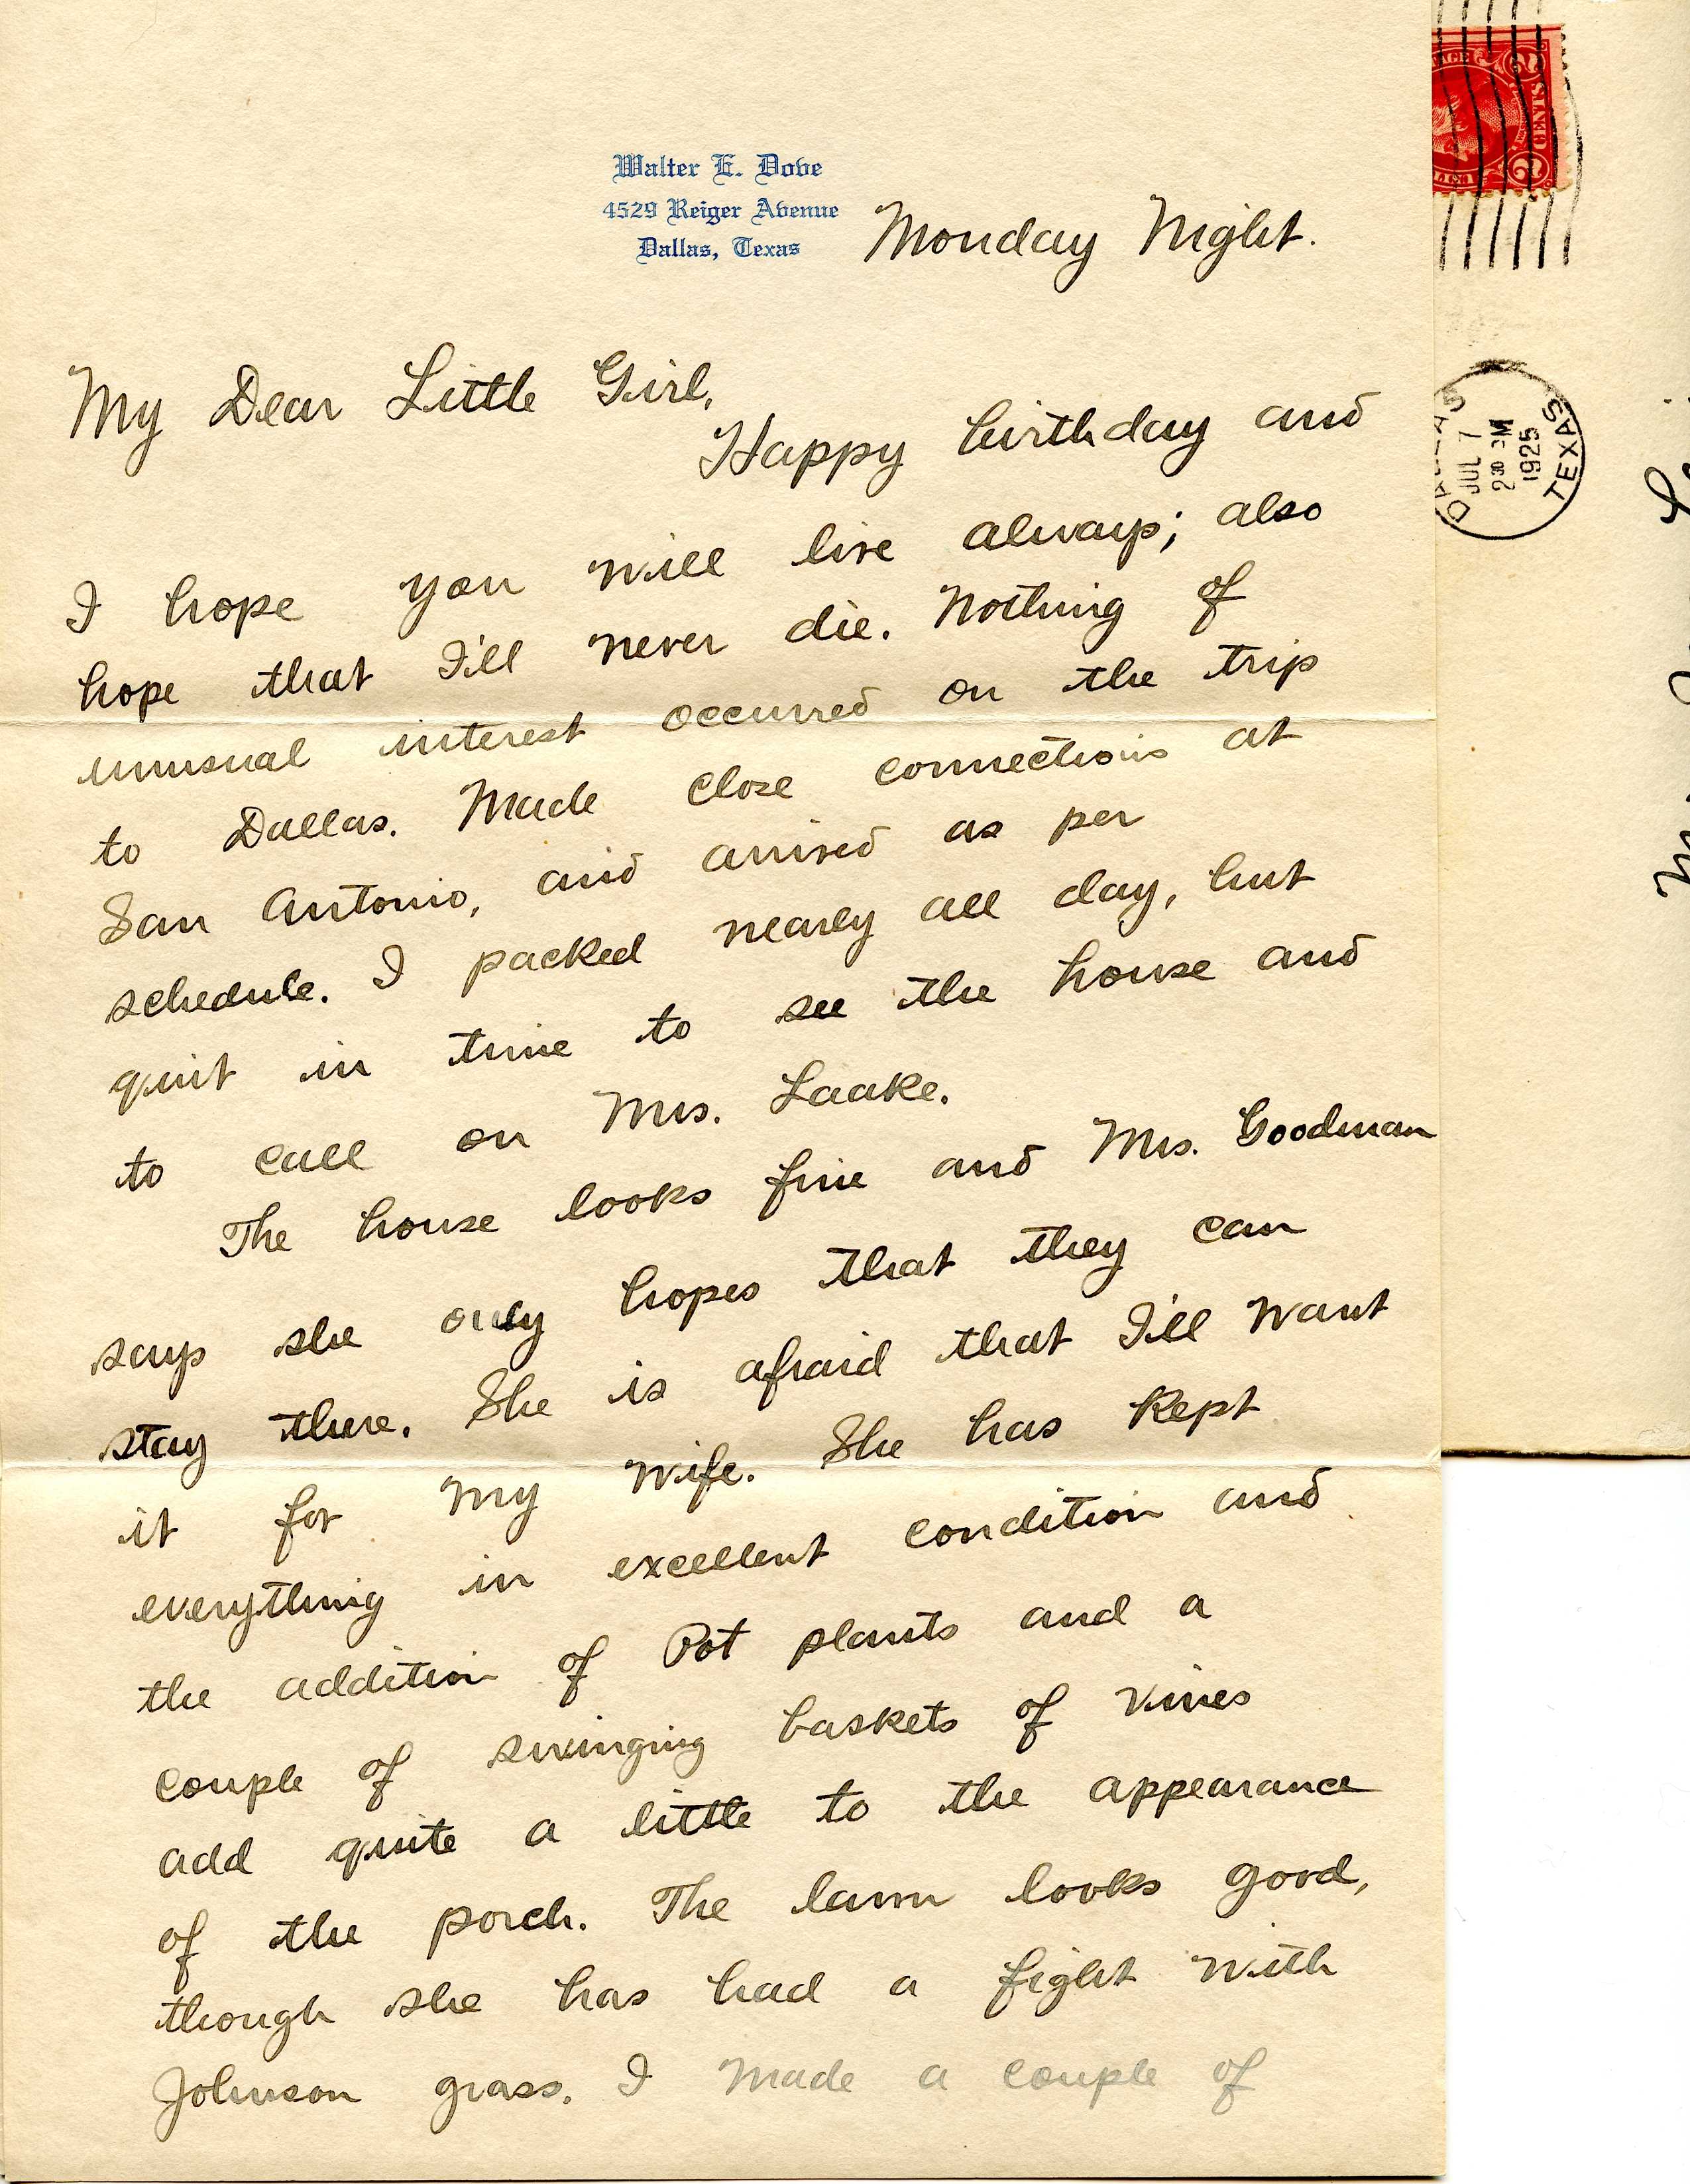 Walter E. Dove
4529 Reiger Avenue
Dallas, Texas
Monday Night.
My Dear Little Girl,
Happy birthday and
I hope you will live always; also
hope that I'll never die. Nothing of
unusual interest occurred on the trip
to Dallas. Made close connections at
San Antonio, and arrived as per
schedule. I packed nearly all day, but
quit in time to see the house and
to call on Mrs. Laake.
The house looks fine and Mrs. Goodman
says she only hopes that they can
stay there. She is afraid that I'll want
it for my wife. She has kept
everything in excellent condition and
the addition of Pot plants and a
couple of swinging baskets of vines
add quite a little to the appearance
of the porch. The lawn looks good,
though she has had a fight with
Johnson grass. I made a couple of
2 CENTS 2
JUL 7
2 30 PM
1925
TEXAS